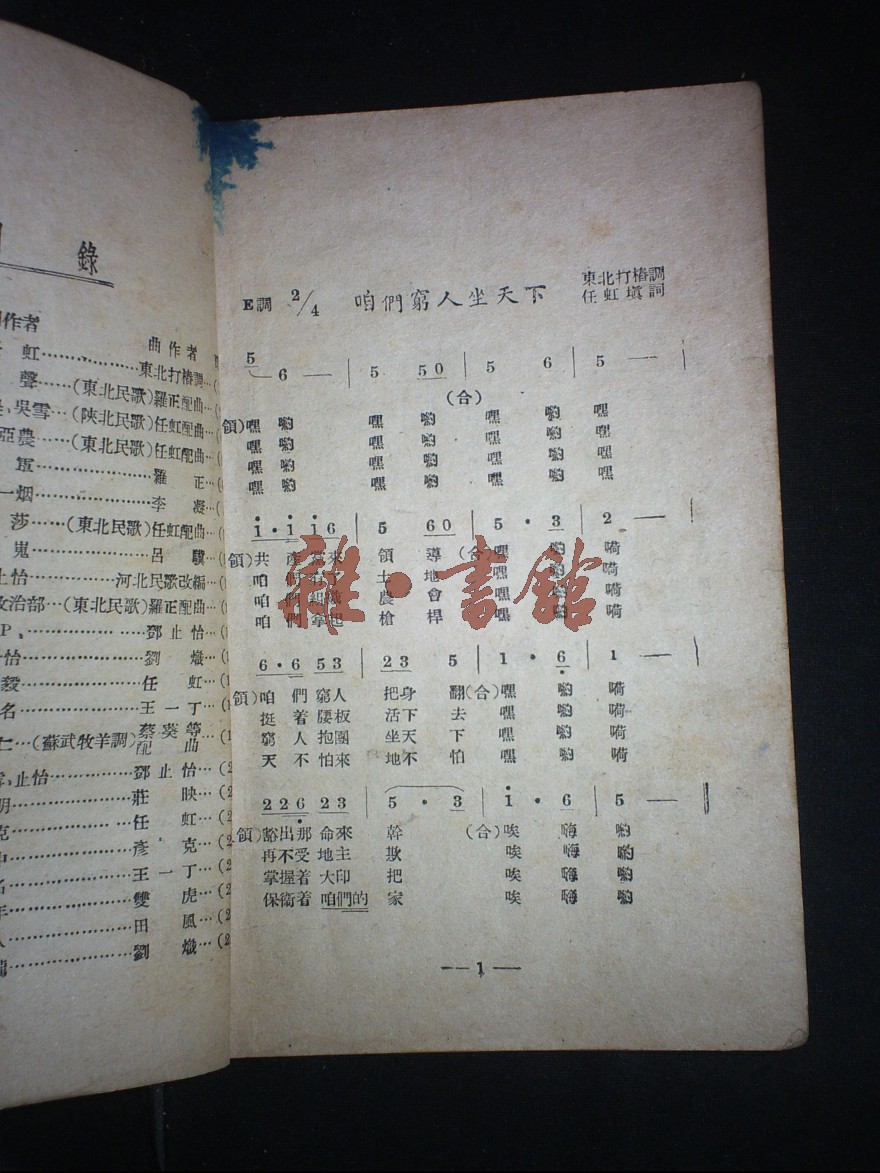 錄
作者 曲作者
虹………東北打樁調…
聲…(東北民歌)羅正配曲…(
吳雪…(陝北民歌)任虹配曲…(
亞農……(東北民歌)任虹配曲…(
軍………………羅 正…(
一烟……………李 凝…(
莎……(東北民歌)任虹配曲…(
嵬………………呂 驥…(
止怡…………河北民歌改編…(
政治部…(東北民歌)羅正配曲…(
P、……………鄧止怡…(1
怡………………劉 熾…(1
毅………………任 虹…(1
名………………王一丁…(1
仁…(蘇武牧羊調)蔡葵等配曲…(1
止怡……………鄧止怡…(2
明………………莊 映…(2
克………………任 虹…(2
中………………彥 克…(2
名………………王一丁…(2
年………………雙 虎…(2
人………………田 風…(2
劉 熾…(2
E調 2/4 咱們窮人坐天下 東北打樁調
任虹填詞
5 6 — | 5 50 | 5 6 | 5 — |
(合)
領)嘿 喲 嘿 喲 嘿 喲 嘿
嘿 喲 嘿 喲 嘿 喲 嘿
嘿 喲 嘿 喲 嘿 喲 嘿
嘿 喲 嘿 喲 嘿 喲 嘿
1·1 16 | 5 60 | 5·3 | 2 — |
領)共產黨來 領 導 (合)嘿 喲 嗬
咱 們 土 地 嘿 喲 嗬
咱 們 組 農 會 嘿 喲 嗬
咱 們 拿起 槍 桿 嘿 喲 嗬
6·6 53 | 23 5 | 1·6 | 1 — |
領)咱 們 窮人 把身 翻(合)嘿 喲 嗬
挺 着 腰板 活下 去 嘿 喲 嗬
窮 人 抱團 坐天 下 嘿 喲 嗬
天 不 怕來 地不 怕 嘿 喲 嗬
226 23 | 5·3 | 1·6 | 5 — |
領)豁出那 命來 幹 (合)唉 嗨 喲
再不受 地主 欺 唉 嗨 喲
掌握着 大印 把 唉 嗨 喲
保衛着 咱們的 家 唉 嗨 喲
—1—
雜·書館